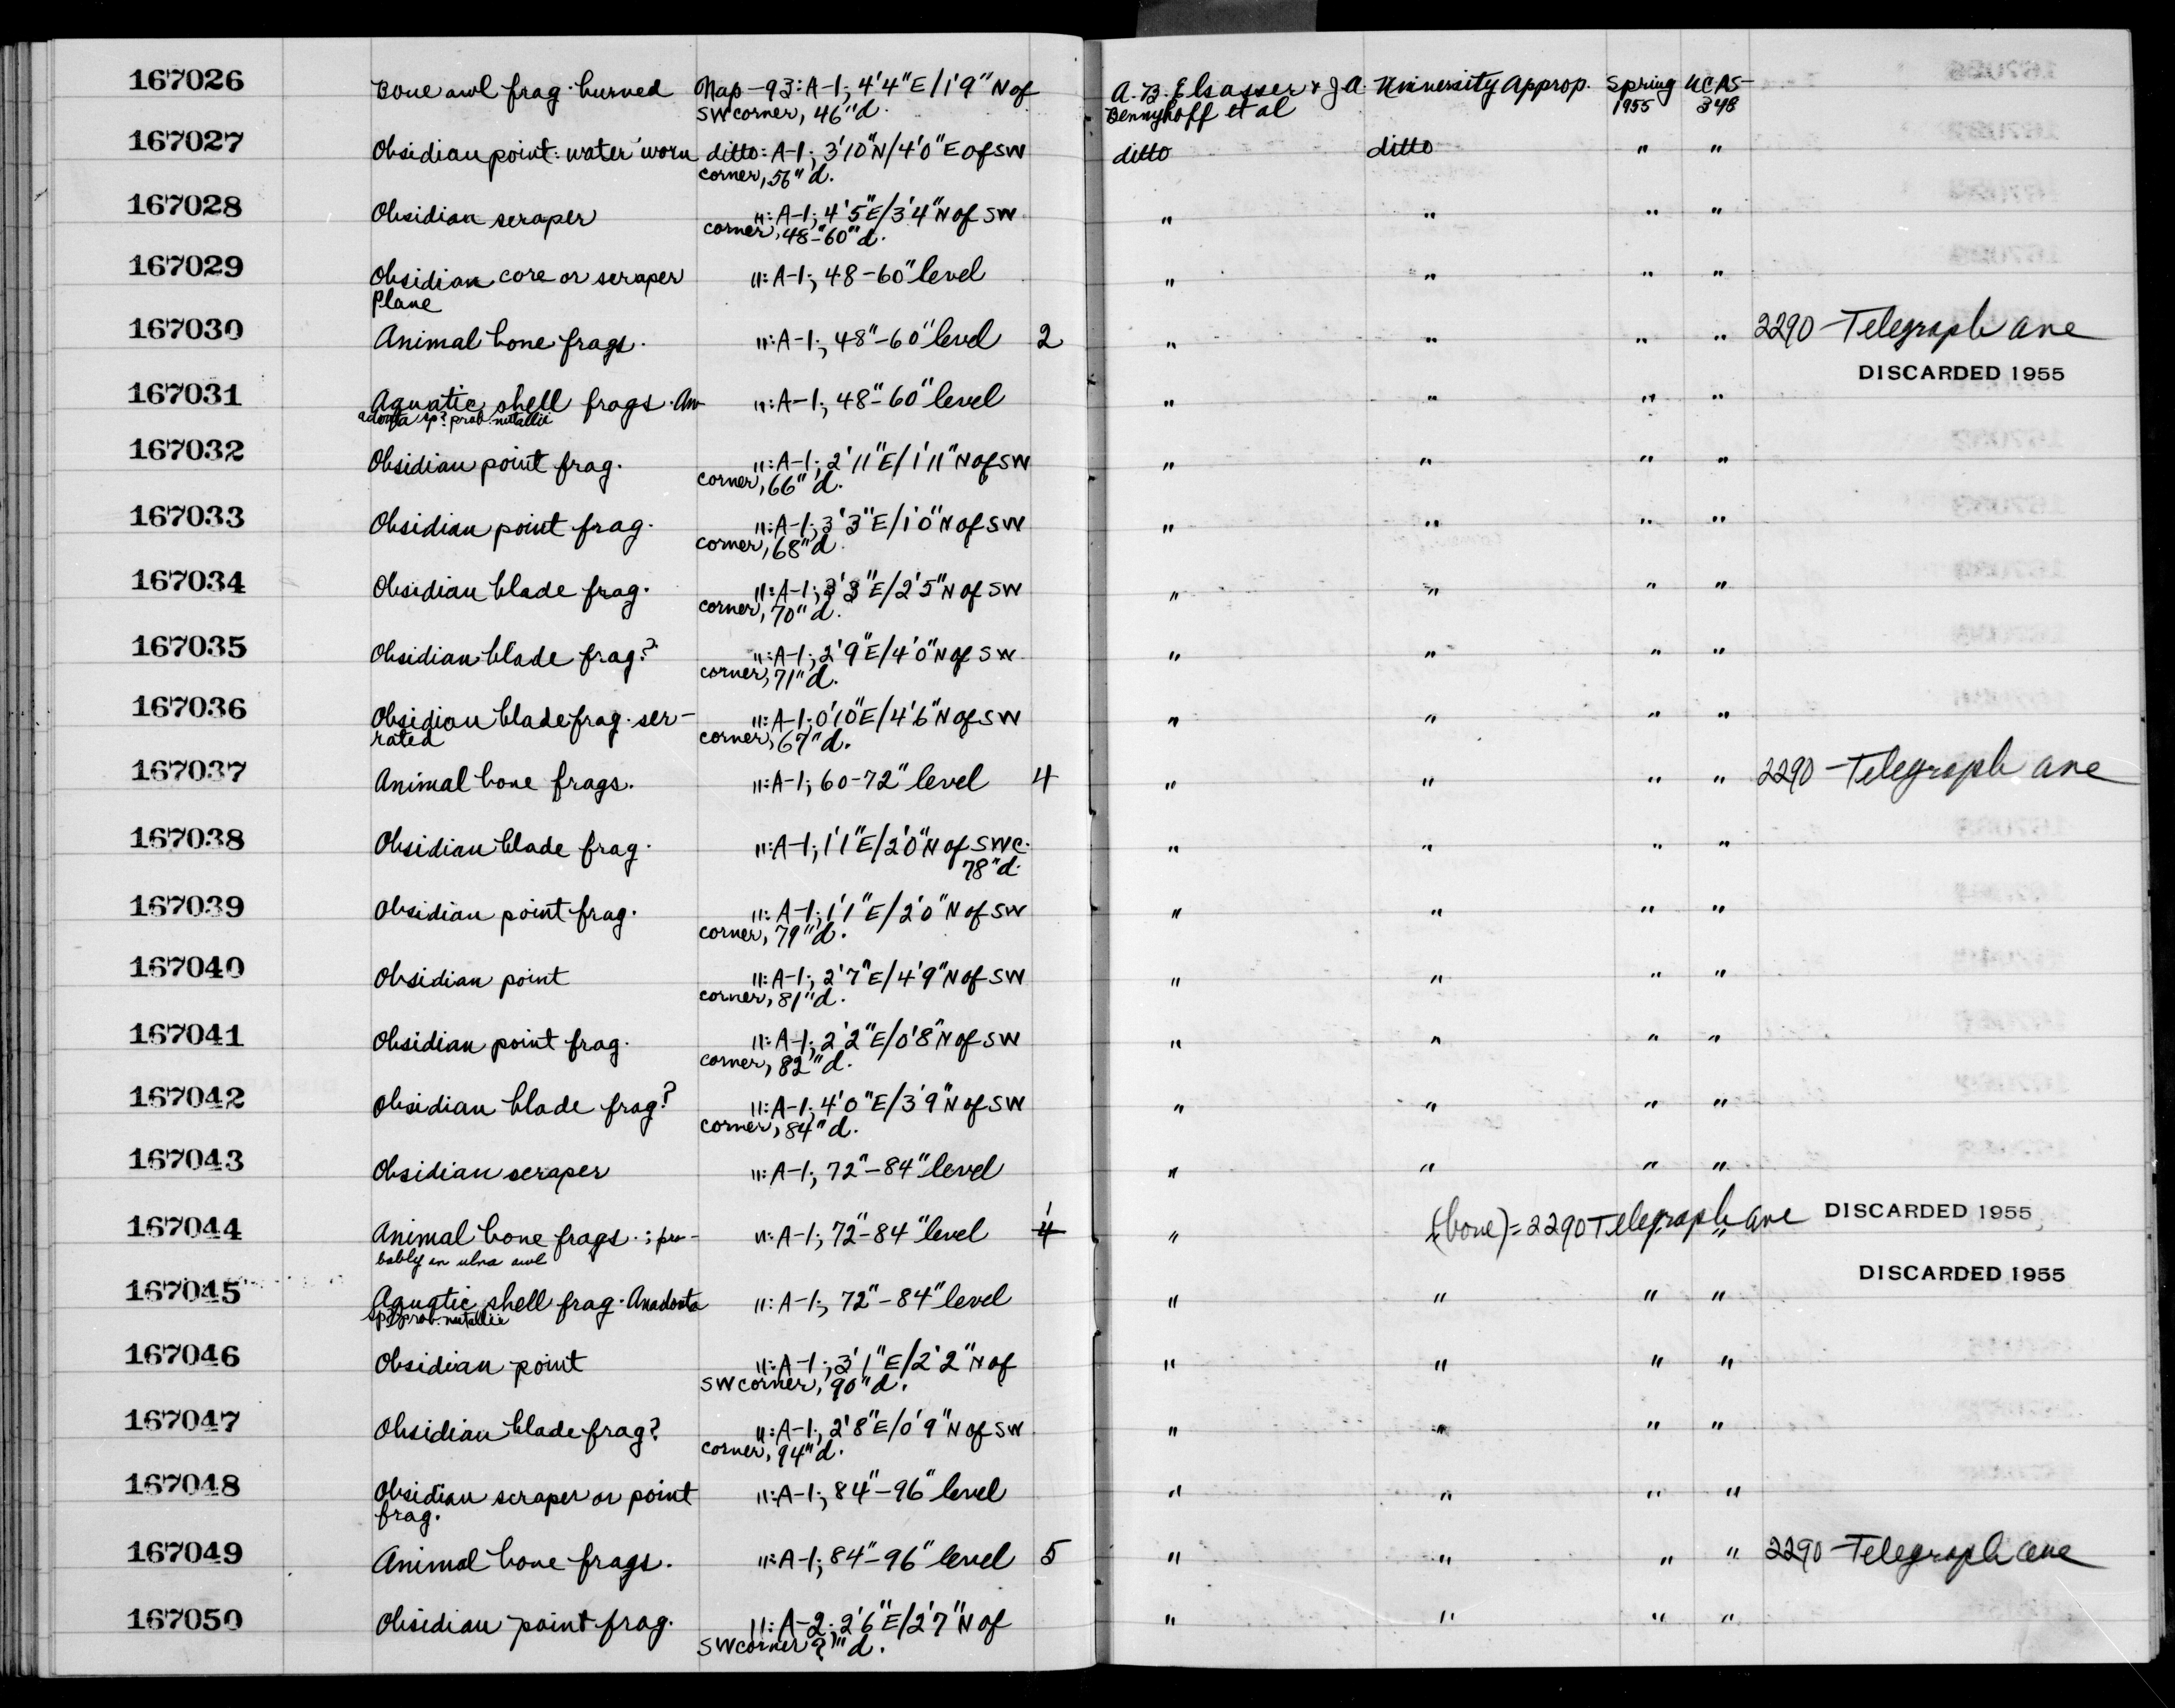 167026 Bone awl frag. burned Nap-93: A-1; 4'4"E/1'9"N of A.B. Elsasser & J.A. University Approp. Spring UCAS-
SW corner, 46"d. Bennyhoff et al 1955 348
167027 Obsidian point: water worn ditto: A-1; 3'10"N/4'0"E of SW ditto ditto " "
corner, 56"d.
167028 Obsidian scraper ": A-1; 4'5"E/3'4"N of SW " " " "
corner, 48-60"d.
167029 Obsidian core or scraper ": A-1; 48-60" level " " " "
Plane
167030 Animal bone frags. ": A-1; 48"-60" level 2 " " " " 2290 Telegraph Ave
DISCARDED 1955
167031 Aquatic shell frags. An- ": A-1; 48"-60" level " " " "
adonta sp? prob. nutallii
167032 Obsidian point frag. ": A-1; 2'11"E/1'11"N of SW " " " "
corner, 66"d.
167033 Obsidian point frag. ": A-1; 3'3"E/1'0"N of SW " " " "
corner, 68"d.
167034 Obsidian blade frag. ": A-1; 3'3"E/2'5"N of SW " " " "
corner, 70"d.
167035 Obsidian blade frag? ": A-1; 2'9"E/4'0"N of SW " " " "
corner, 71"d.
167036 Obsidian blade frag. ser- ": A-1; 0'10"E/4'6"N of SW " " " "
rated corner, 67"d.
167037 Animal bone frags. ": A-1; 60-72" level 4 " " " " 2290 Telegraph Ave
167038 Obsidian blade frag. ": A-1; 1'1"E/2'0"N of SW c. " " " "
78"d.
167039 Obsidian point frag. ": A-1; 1'1"E/2'0"N of SW " " " "
corner, 79"d.
167040 Obsidian point ": A-1; 2'7"E/4'9"N of SW " " " "
corner, 81"d.
167041 Obsidian point frag. ": A-1; 2'2"E/0'8"N of SW " " " "
corner, 82"d.
167042 Obsidian blade frag? ": A-1; 4'0"E/3'9"N of SW " " " "
corner, 84"d.
167043 Obsidian scraper ": A-1; 72"-84" level " " " "
167044 Animal bone frags.; pro- ": A-1; 72"-84" level 4 1 " " " " (bone) = 2290 Telegraph Ave DISCARDED 1955
bably an ulna awl
DISCARDED 1955
167045 Aquatic shell frag. Anadonta ": A-1; 72"-84" level " " " "
sp? prob. nutallii
167046 Obsidian point ": A-1; 3'1"E/2'2"N of " " " "
SW corner, 90"d.
167047 Obsidian blade frag? ": A-1; 2'8"E/0'9"N of SW " " " "
corner, 94"d.
167048 Obsidian scraper or point ": A-1; 84"-96" level " " " "
frag.
167049 Animal bone frags. ": A-1; 84"-96" level 5 " " " " 2290 Telegraph Ave
167050 Obsidian point frag. ": A-2; 2'6"E/2'7"N of " " " "
SW corner "d.